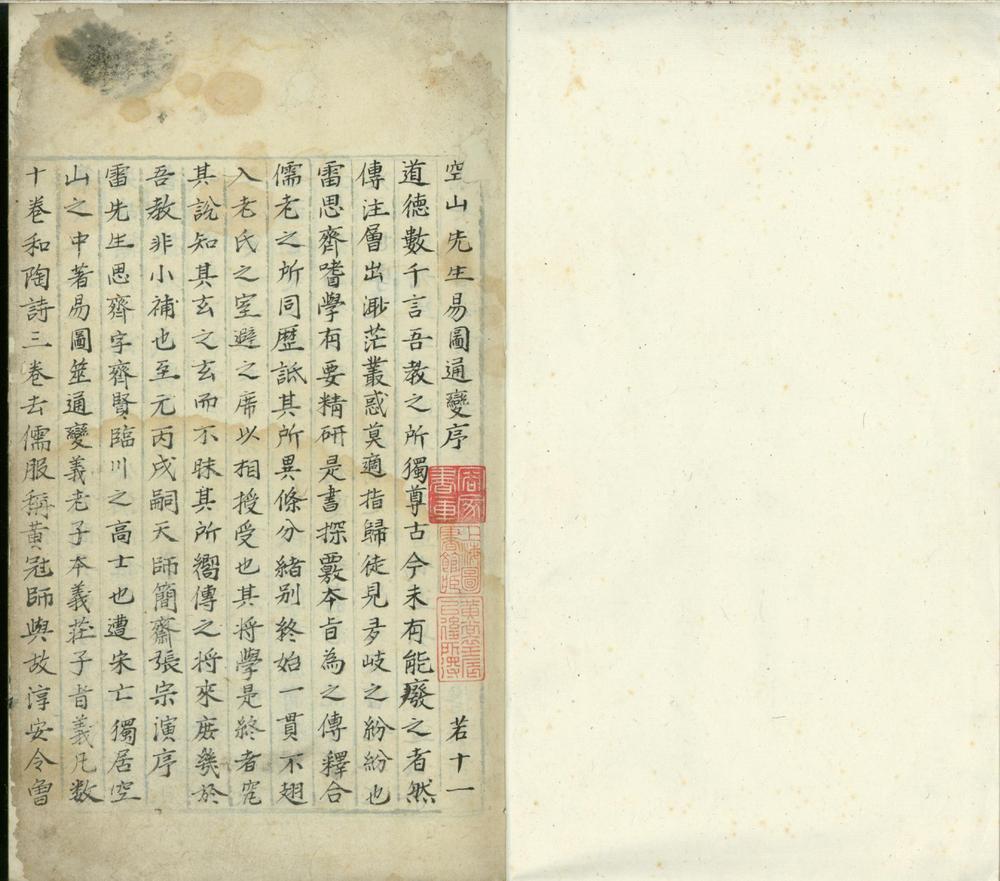 空山先生易圖通變序
若十一
道德數千言吾教之所獨尊古今未有能廢之者然
傳注層出渺茫叢惑莫適指歸徒見多岐之紛紛也
雷思齊嗜學有要精研是書探覈本旨為之傳釋合
儒老之所同歷詆其所異條分緒别終始一貫不翅
入老氏之室避之席以相授受也其將學是終者究
其說知其玄之玄而不昧其所嚮傳之將來庶幾於
吾教非小補也至元丙戌嗣天師簡齋張宗演序
雷先生思齊字齊賢臨川之高士也遭宋亡獨居空
山之中著易圖筮通變義老子本義莊子旨義凡数
十卷和陶詩三卷去儒服稱黄冠師與故淳安令曾